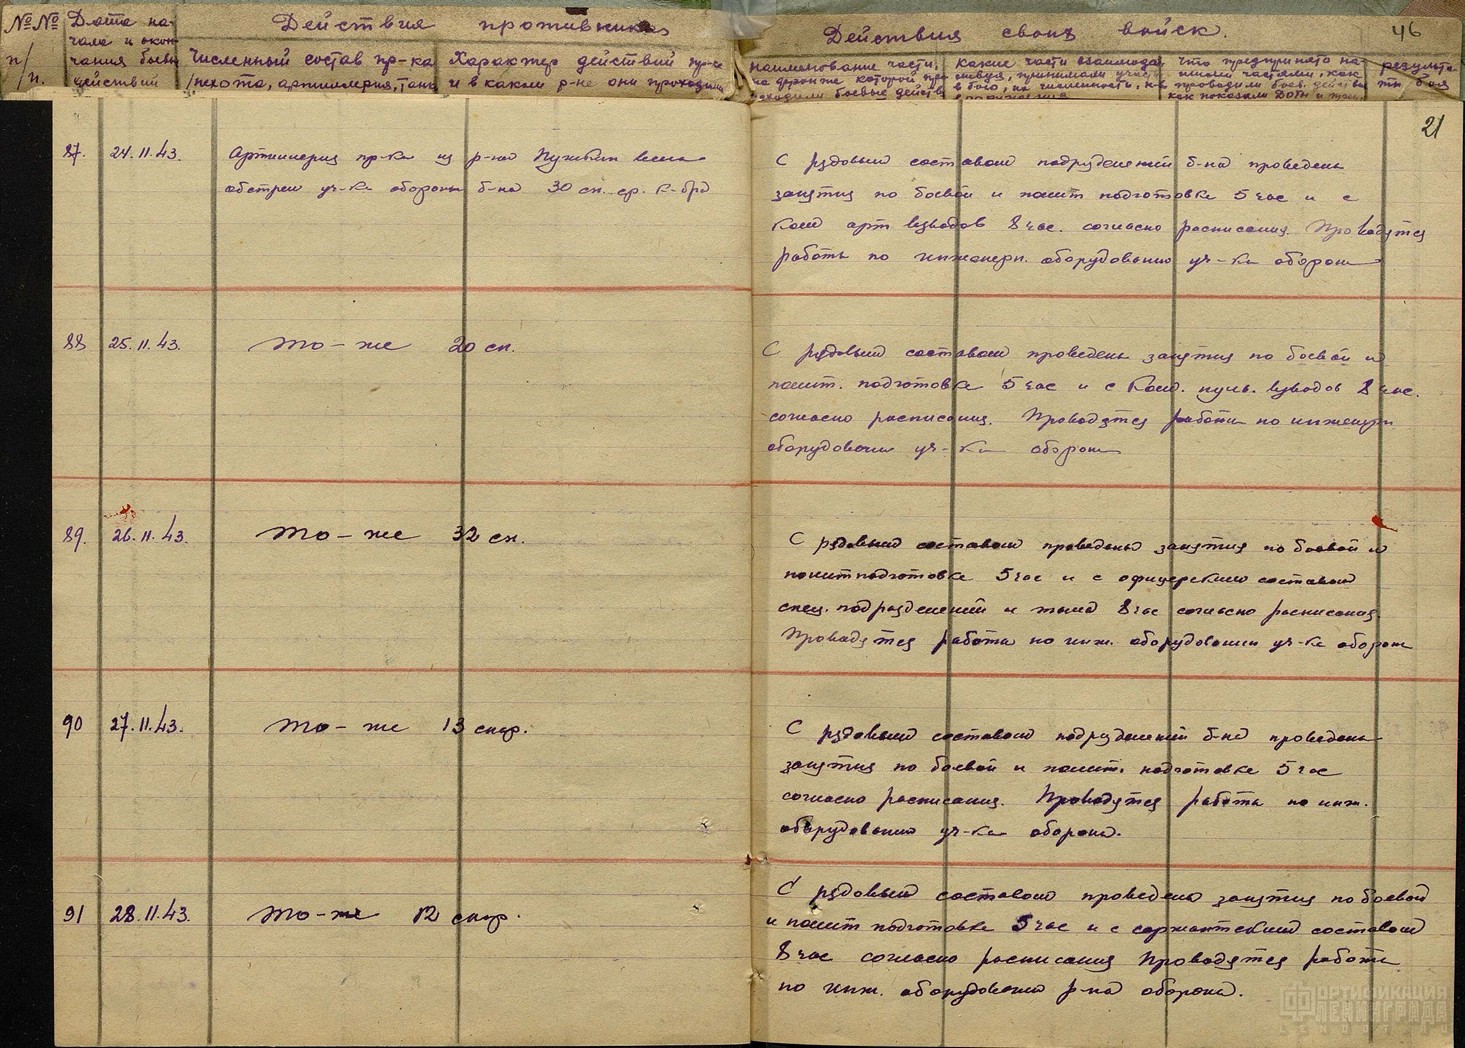 №№ п/п.
Дата на-
чала и окон-
чания боевы
действий
Действия противника
Численный состав пр-ка
/пехота, артиллерия, танк
Характер действий пр-ка
и в каком р-не они проходили
Действия своих войск.
46
наименование части,
на фронте которой про
исходили боевые действ
какие части взаимодей
ствуя, принимали участ
в бою, их численность, и в
что предпринято на-
шими частями, как
проводили боев. действи
как показали ДОТы и
результа
ты боя
21
87. 24.11.43.
Артиллерия пр-ка из р-на Пушкин вела
обстрел уч-ка обороны б-на 30 сн. ср. к-бра
С рядовым составом подразделений б-на проведены
занятия по боевой и полит подготовке 5 час и с
Ком арт взводов 8 час. согласно расписания. Проводятся
работы по инженерн. оборудованию уч-ка обороны
88 25.11.43. То-же 20 сн.
С рядовым составом проведены занятия по боевой и
полит. подготовке 5 час и с Ком. пуль. взводов 8 час.
согласно расписания. Проводятся работы по инженерн.
оборудовании уч-ка обороны
89. 26.11.43. То-же 32 сн.
С рядовым составом проведены занятия по боевой и
политподготовке 5 час и с офицерским составом
спец. подразделений и тыла 8 час согласно расписания.
Проводятся работы по инж. оборудовании уч-ка обороны
90 27.11.43. То-же 13 снар.
С рядовым составом подразделений б-на проведены
занятия по боевой и полит. подготовке 5 час
согласно расписания. Проводятся работы по инж.
оборудованию уч-ка обороны.
91 28.11.43. То-же 12 снар.
С рядовым составом проведены занятия по боевой
и полит подготовке 5 час и с сержантским составом
8 час согласно расписания Проводятся работы
по инж. оборудовании р-на обороны.
ФОРТИФИКАЦИЯ
ЛЕНИНГРАДА